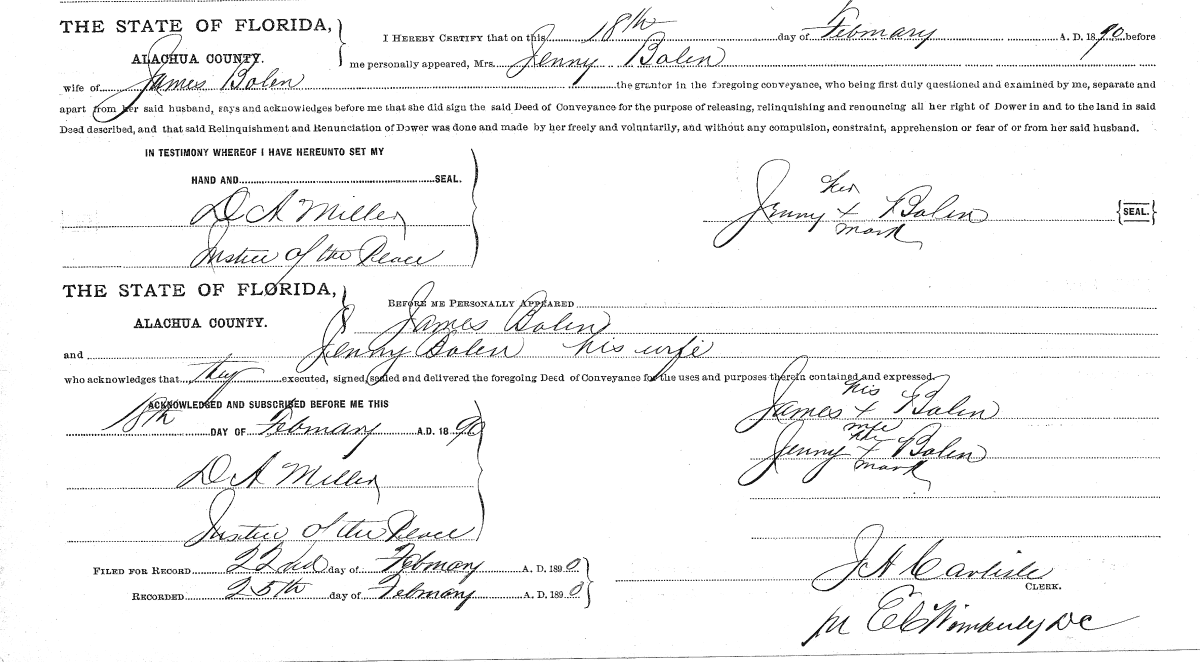 THE STATE OF FLORIDA,
ALACHUA COUNTY.
I HEREBY CERTIFY that on this 18th day of February A. D. 1890, before
me personally appeared, Mrs. Jenny Bolen
wife of James Bolen the grantor in the foregoing conveyance, who being first duly questioned and examined by me, separate and
apart from her said husband, says and acknowledges before me that she did sign the said Deed of Conveyance for the purpose of releasing, relinquishing and renouncing all her right of Dower in and to the land in said
Deed described, and that said Relinquishment and Renunciation of Dower was done and made by her freely and voluntarily, and without any compulsion, constraint, apprehension or fear of or from her said husband.
IN TESTIMONY WHEREOF I HAVE HEREUNTO SET MY
HAND AND SEAL.
D A Miller
Justice of the Peace
her
Jenny + Bolen {SEAL.}
mark
THE STATE OF FLORIDA,
ALACHUA COUNTY.
BEFORE ME PERSONALLY APPEARED
James Bolen
and Jenny Bolen his wife
who acknowledges that they executed, signed, sealed and delivered the foregoing Deed of Conveyance for the uses and purposes therein contained and expressed.
ACKNOWLEDGED AND SUBSCRIBED BEFORE ME THIS
18th DAY OF February A.D. 1890
D A Miller
Justice of the Peace
his
James + Bolen
her
Jenny + Bolen
mark
FILED FOR RECORD 22nd day of February A. D. 1890.
RECORDED 25th day of February A. D. 1890
J A Carlisle
CLERK.
E C Wimberly DC